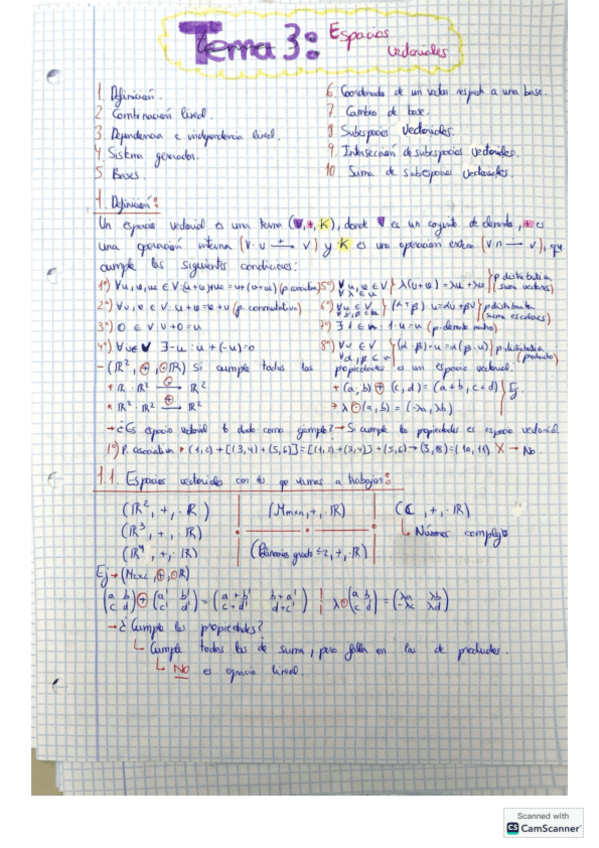 Tema 3: Espacios vectoriales
1. Definición.
2. Combinación lineal
3. Dependencia e independencia lineal.
4. Sistema generador.
5. Bases.
6. Coordenadas de un vector respecto a una base.
7. Cambio de base.
8 Subespacios vectoriales.
9. Intersección de subespacios vectoriales.
10. Suma de subespacios vectoriales
1. Definición:
Un espacio vectorial es una terna (V,+,K), donde V es un conjunto de elementos, + es
una operación interna (V·V + → V) y K es una operación externa (V → V), que
cumple las siguientes condiciones:
1º) ∀u,v,w ∈ V: (u+v)+w = u+(v+w) (p asociativa)
5º) λ(u+v) = λu + λv p distributiva (suma vectores)
2º) ∀u,v ∈ V: u+v = v+u (p. conmutativa)
6º) (α+β)·u = αu + βu p distributiva (suma escalares)
3º) 0 ∈ V: u+0=u
7º) ∃ 1 ∈ : 1·u = u (p. elemento neutro)
4º) ∀u∈V ∃-u : u+(-u)=0
8º) ∀u ∈ V (α·β)·u = α(β·u) p distributiva (producto)
- (R², ⊕, ⊙R) Si cumple todas las propiedades es un espacio vectorial.
* R · R² ⊙ → R²
* (a, b) ⊕ (c, d) = (a+b, c+d) Ej
* R² · R² ⊕ → R²
* λ ⊙ (a, b) = (-λa, λb)
→ ¿Es espacio vectorial lo dado como ejemplo? → Si cumple las propiedades es espacio vectorial.
1º) P. asociativa * (1,2) + [(3,4) + (5,6)] = [(1,2) + (3,4)] + (5,6) → (3,8) = (10,11) X → No
1.1. Espacios vectoriales con los que vamos a trabajar:
(R², +, · R)
(Mmxn, +, · R)
(C, +, · R)
(R³, +, · R)
↳ Números complejos
(R⁴, +, · R)
(Polinomios grado ≤2, +, · R)
Ej → (M2x2, ⊕, ⊙R)
(a b / c d) ⊕ (a' b' / c' d') = (a+b' b+a' / c+d' d+c') λ⊙(a b / c d) = (λa λb / -λc λd)
→ ¿Cumple las propiedades?
↳ Cumple todas las de suma, pero fallan en las de productos.
↳ No es espacio lineal.
Scanned with
CS CamScanner